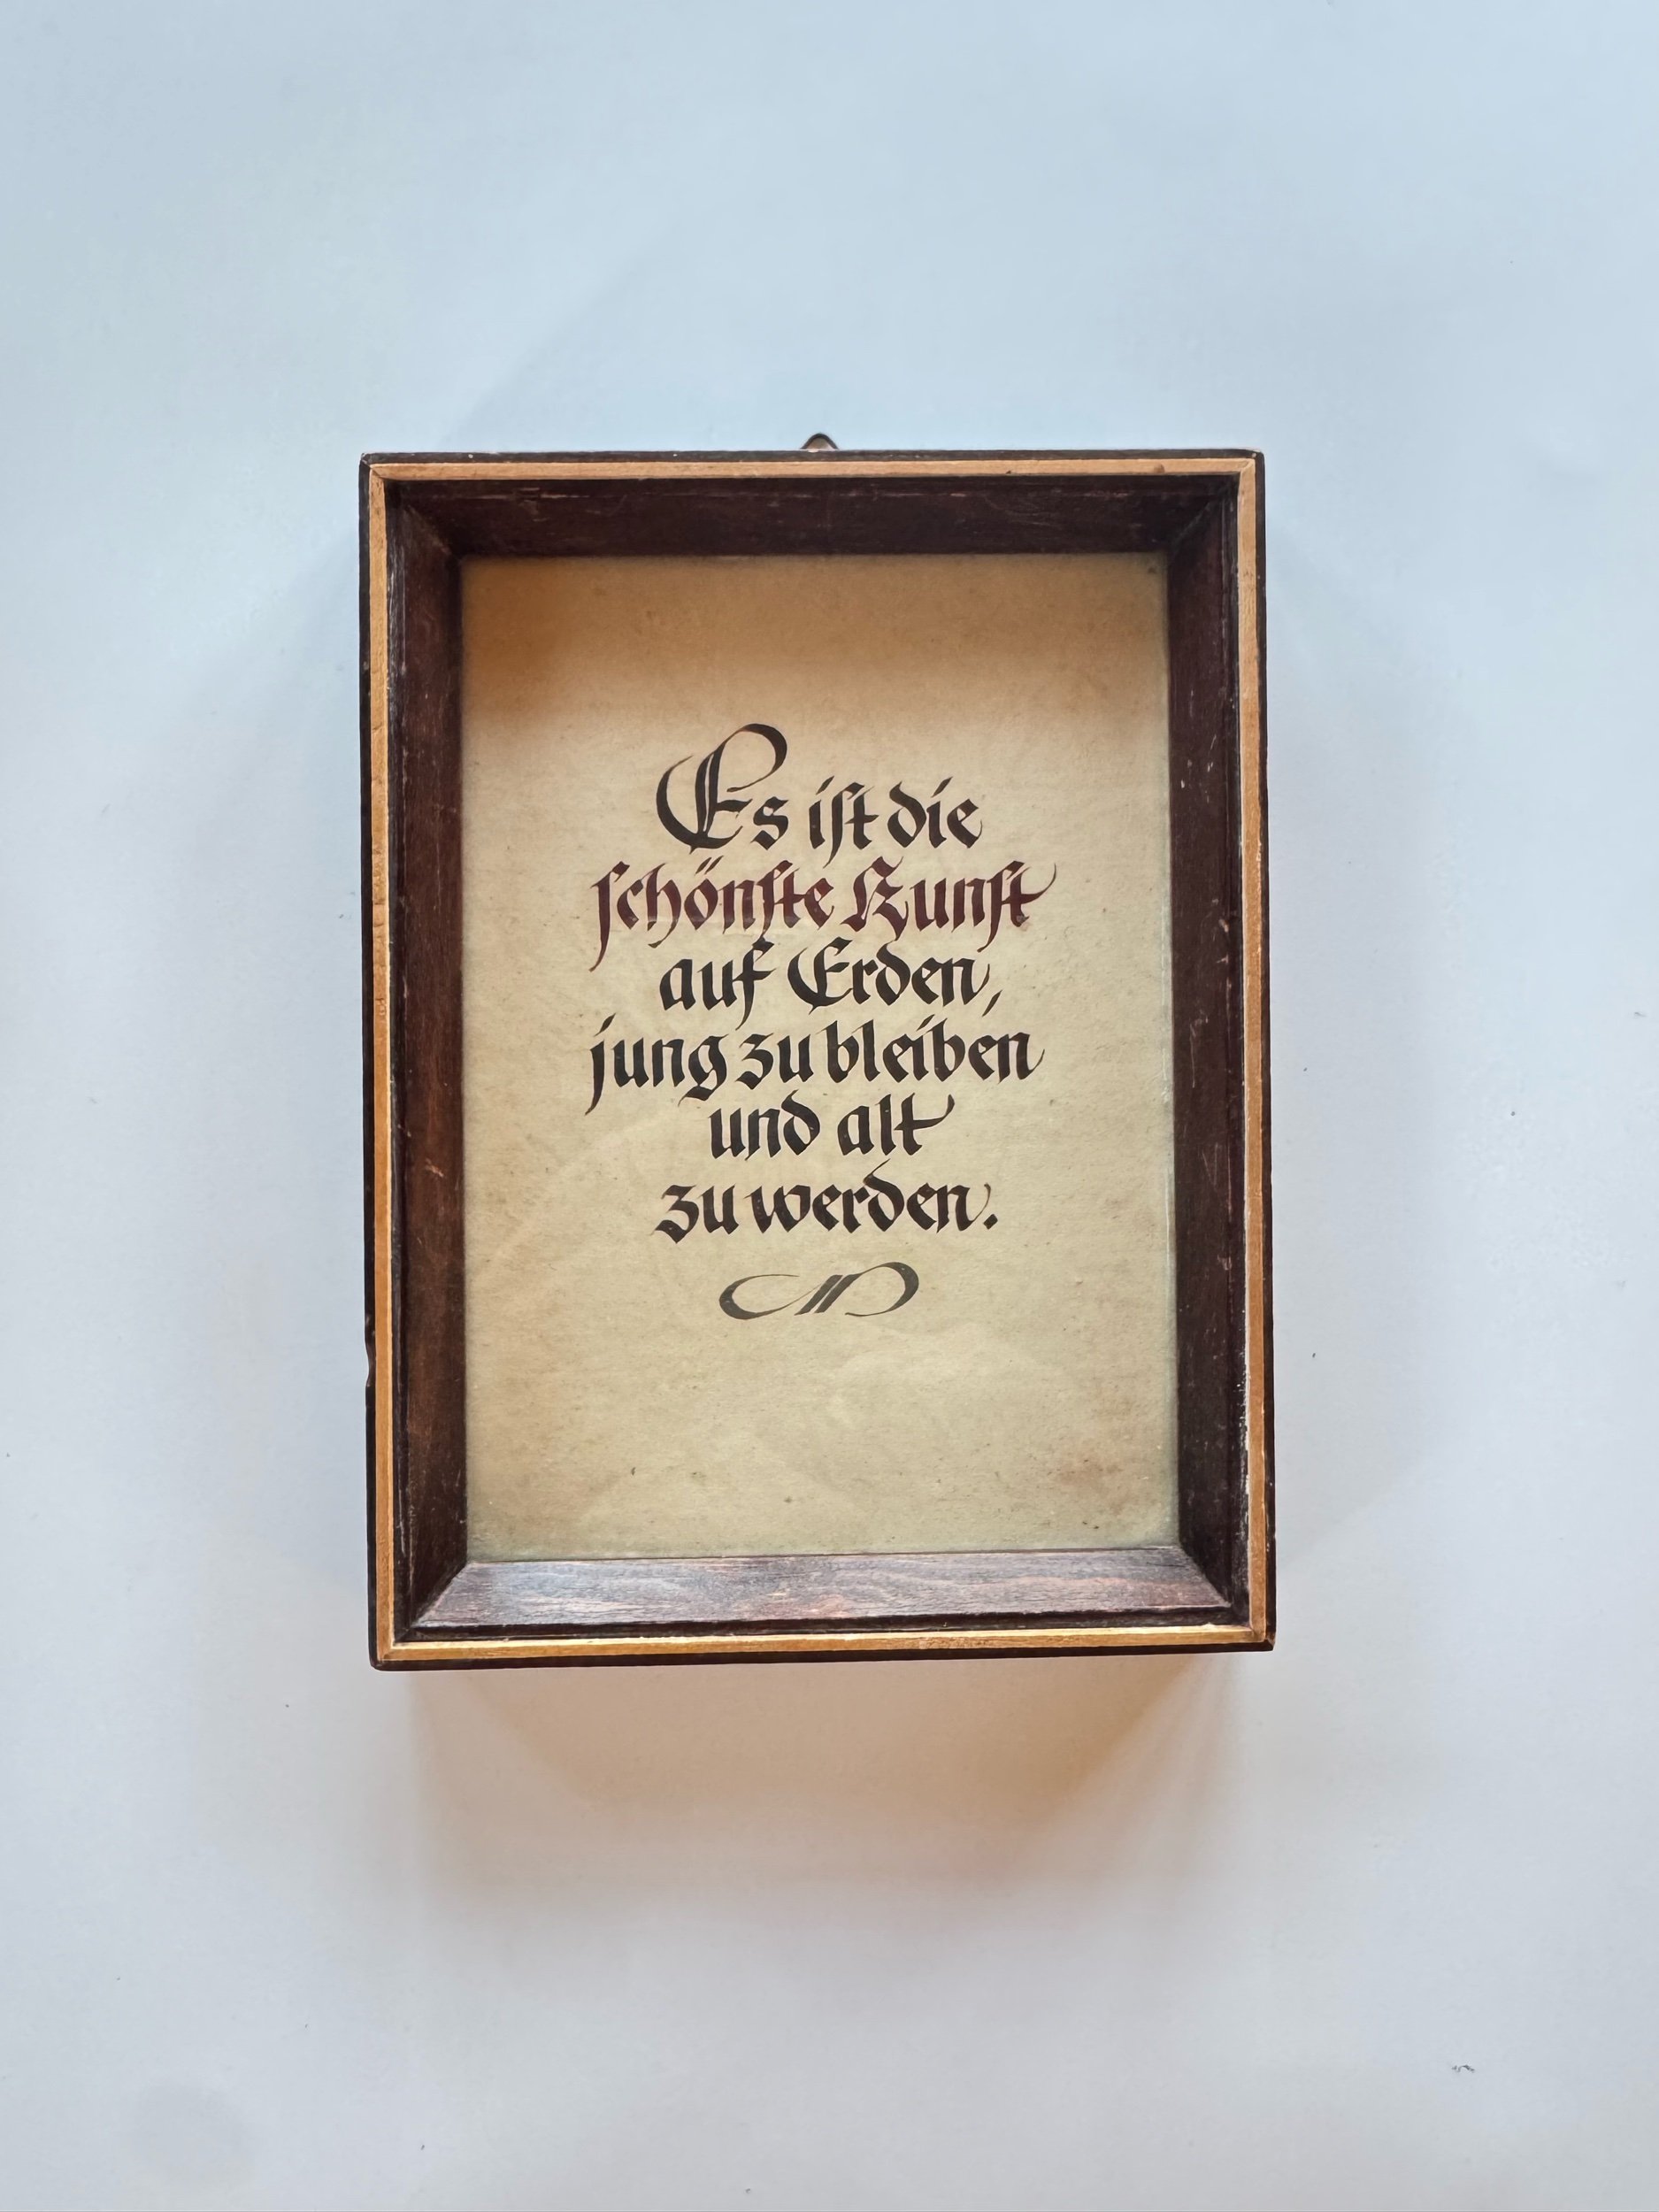 Es ist die
schönste Kunst
auf Erden,
jung zu bleiben
und alt
zu werden.